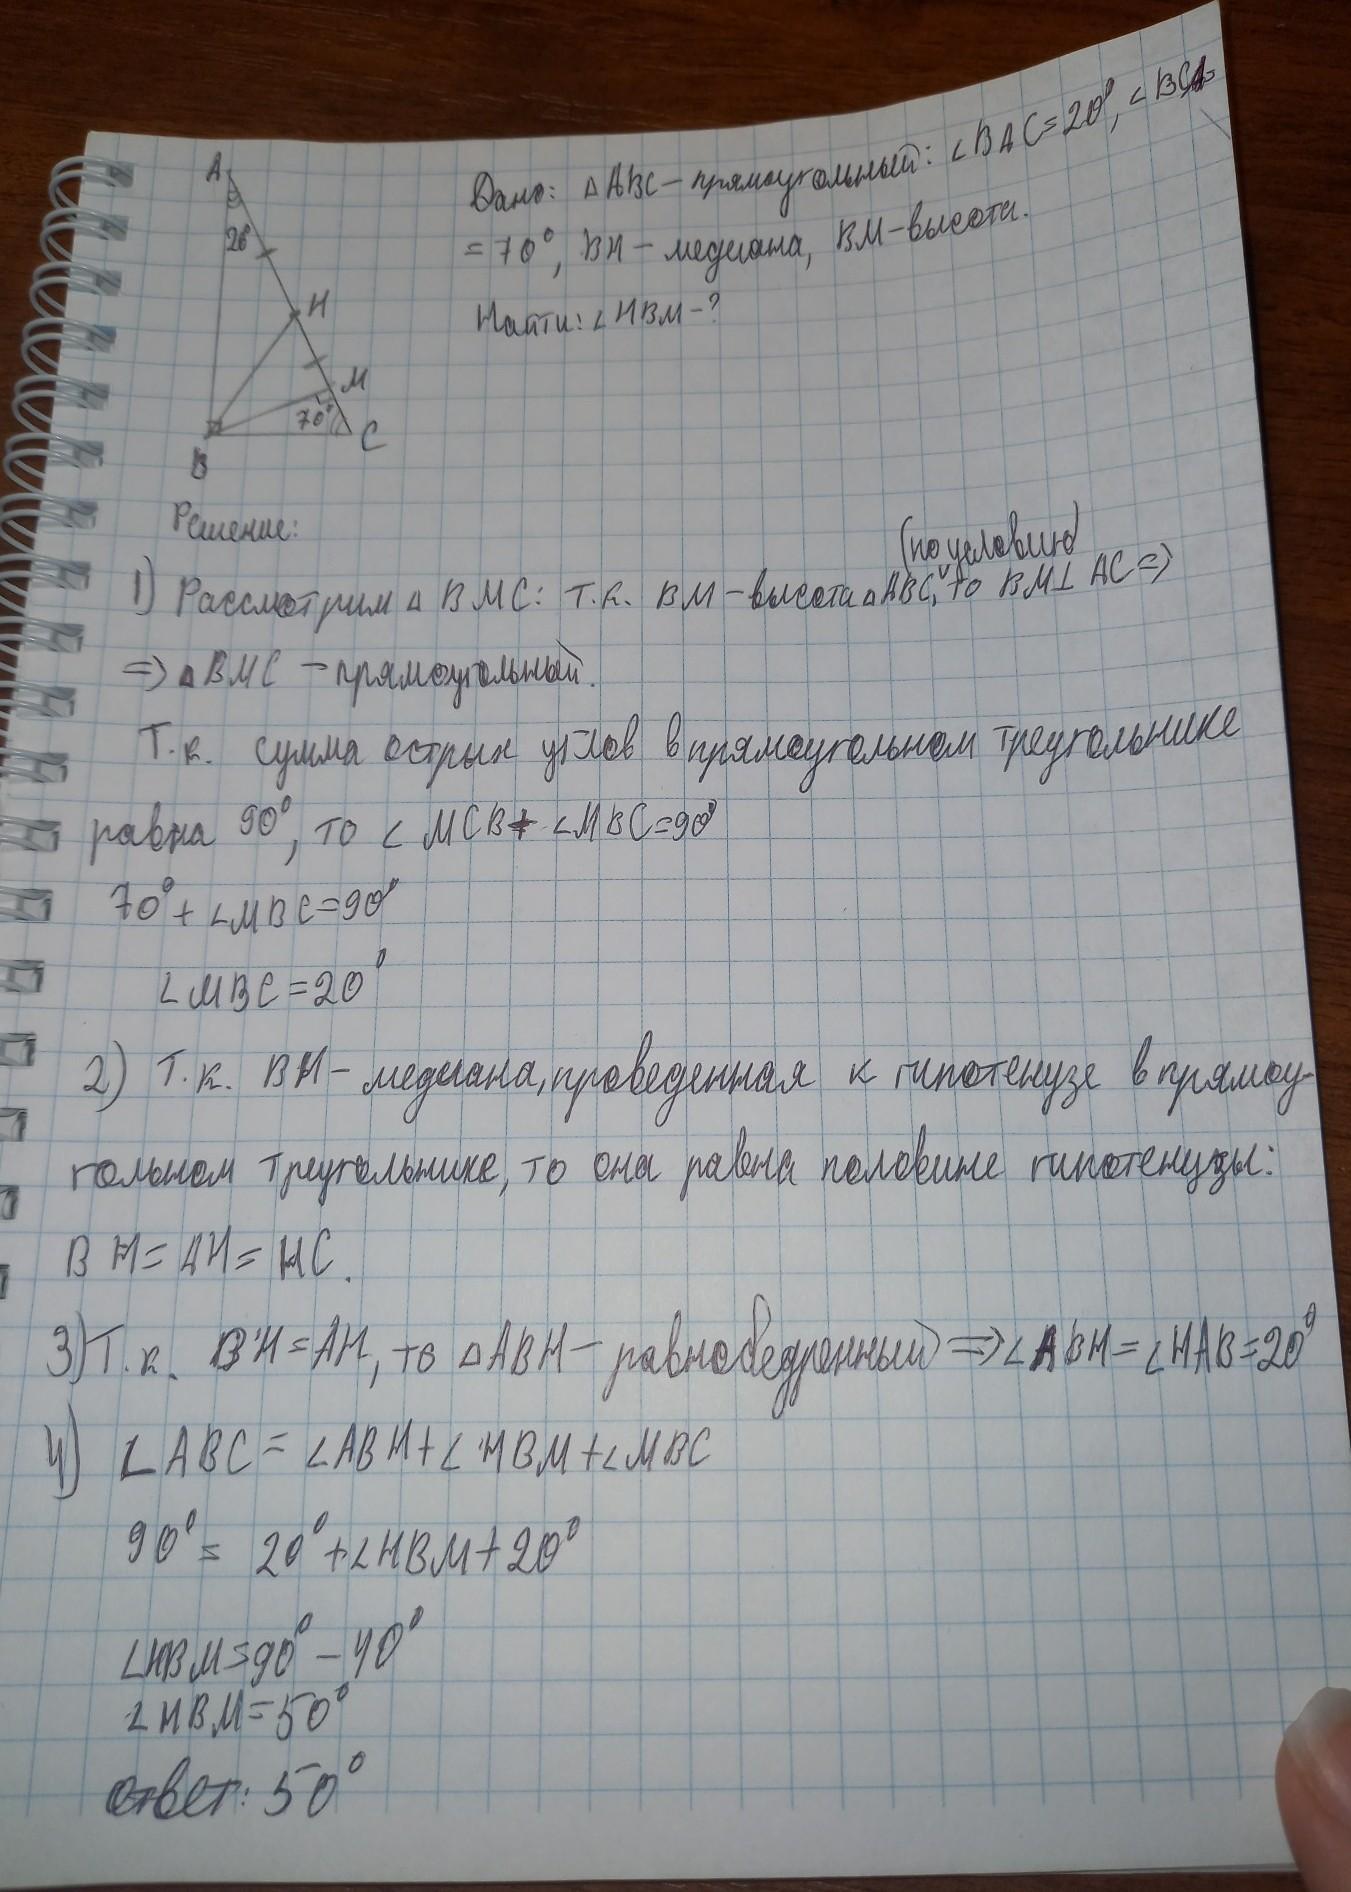 A
20°
H
M
70°
B
C
Дано: △ABC – прямоугольный: ∠BAC=20°, ∠BCA=
=70°, BH – медиана, BM – высота.
Найти: ∠HBM – ?
Решение:
(по условию)
1) Рассмотрим △ BMC: т.к. BM – высота △ABC, то BM⊥AC =>
=> △BMC – прямоугольный.
Т.к. сумма острых углов в прямоугольном треугольнике
равна 90°, то ∠MCB + ∠MBC=90°
70° + ∠MBC=90°
∠MBC=20°
2) Т.к. BH – медиана, проведенная к гипотенузе в прямоу-
гольном треугольнике, то она равна половине гипотенузы:
BH = AH = HC.
3) Т.к. BH=AH, то △ABH – равнобедренный => ∠ABH = ∠HAB=20°
4) ∠ABC = ∠ABH + ∠HBM + ∠MBC
90° = 20° + ∠HBM + 20°
∠HBM = 90° – 40°
∠HBM = 50°
Ответ: 50°